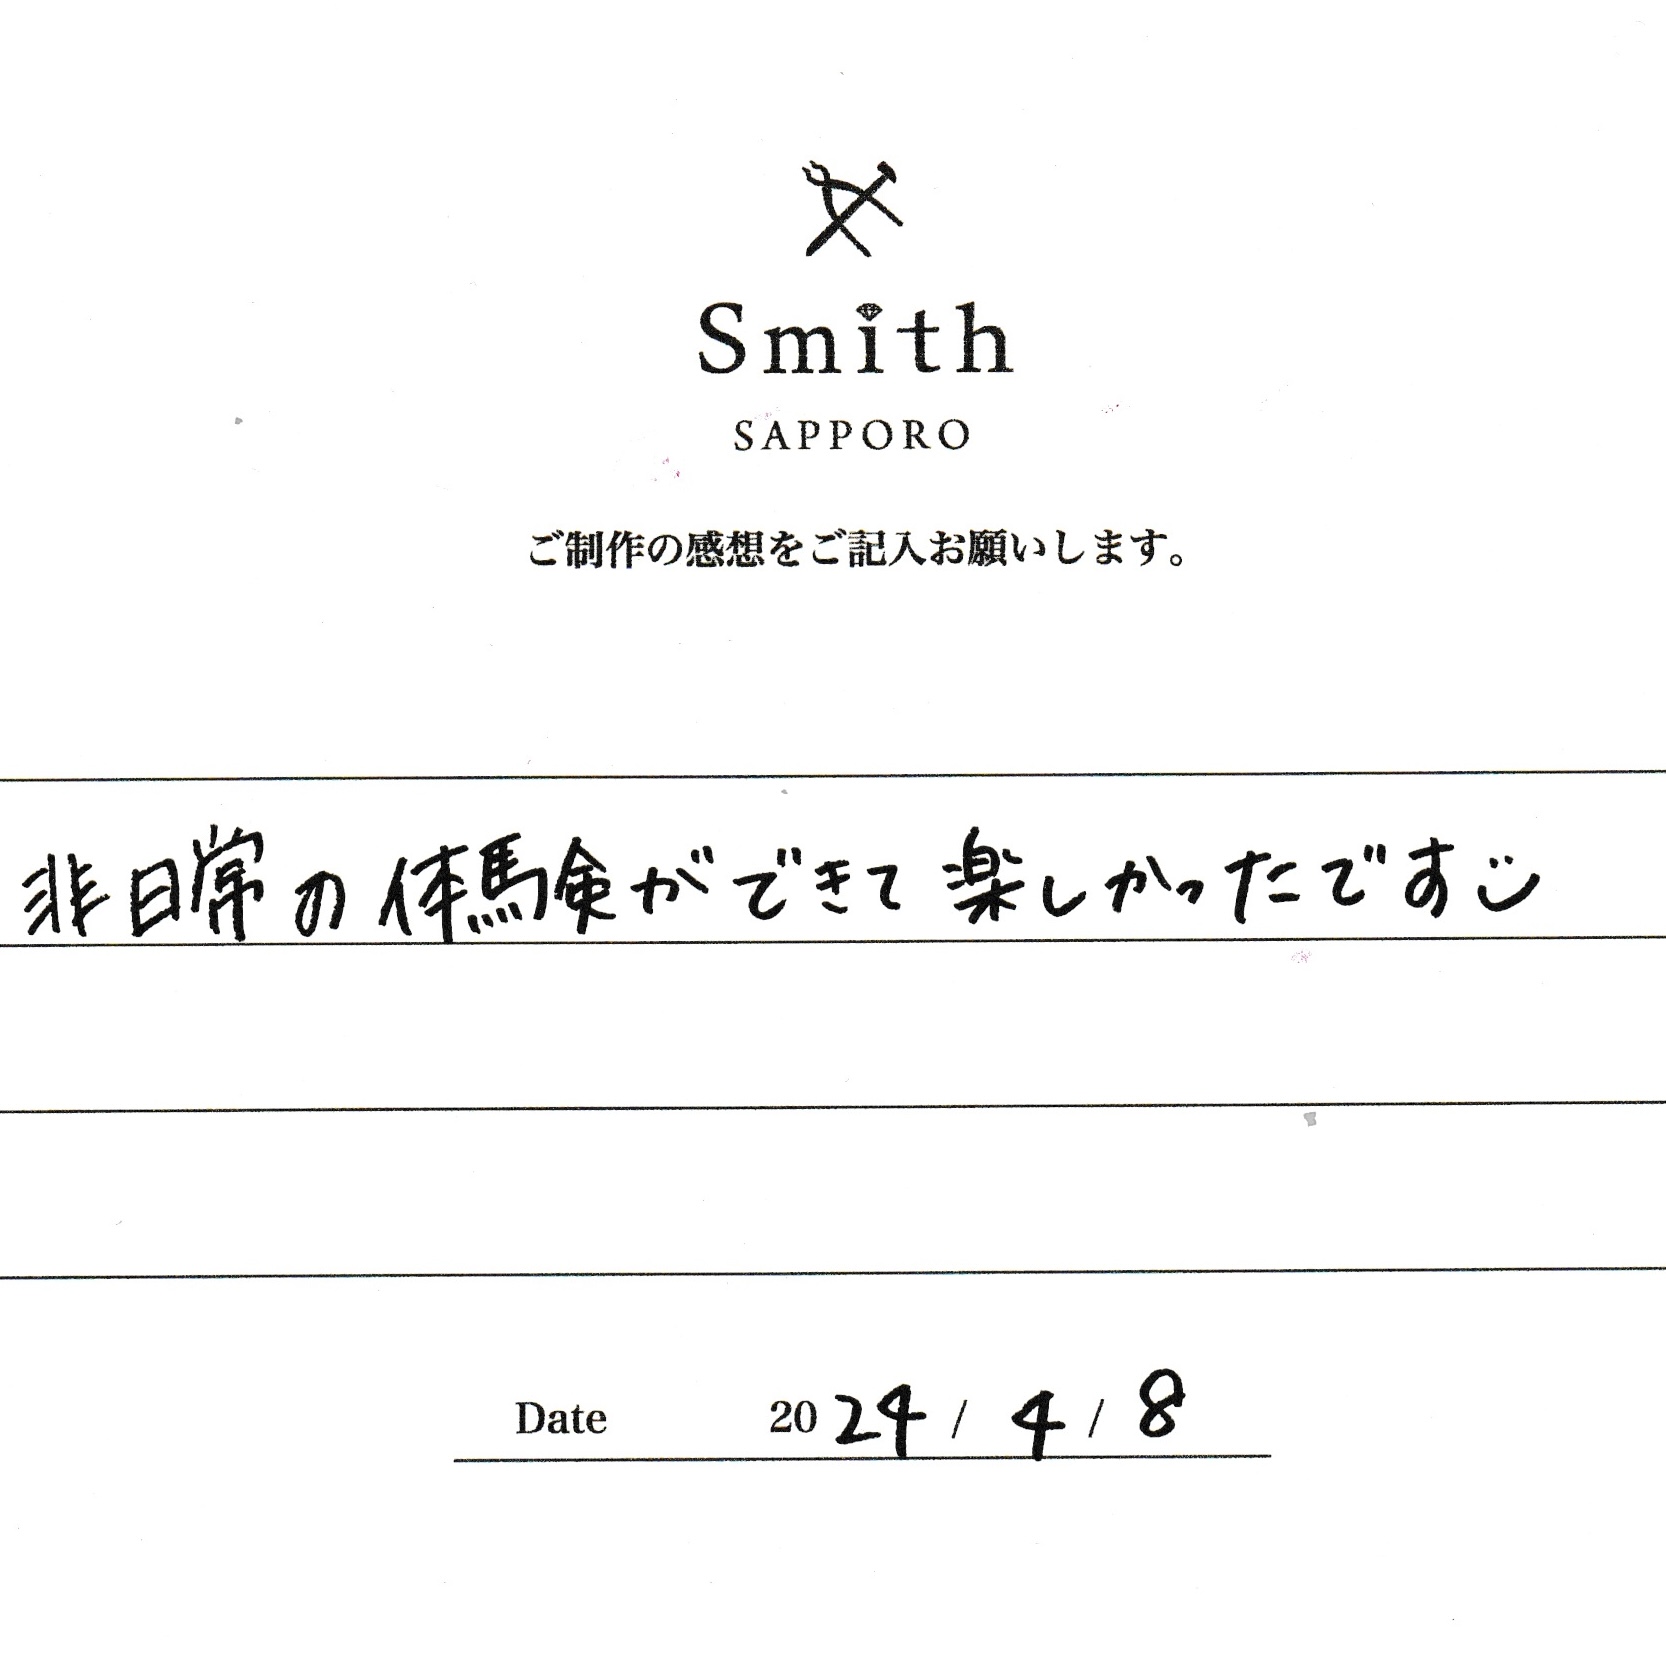 Smith
SAPPORO
ご制作の感想をご記入お願いします。
非日常の体験ができて楽しかったです
Date 2024 / 4 / 8